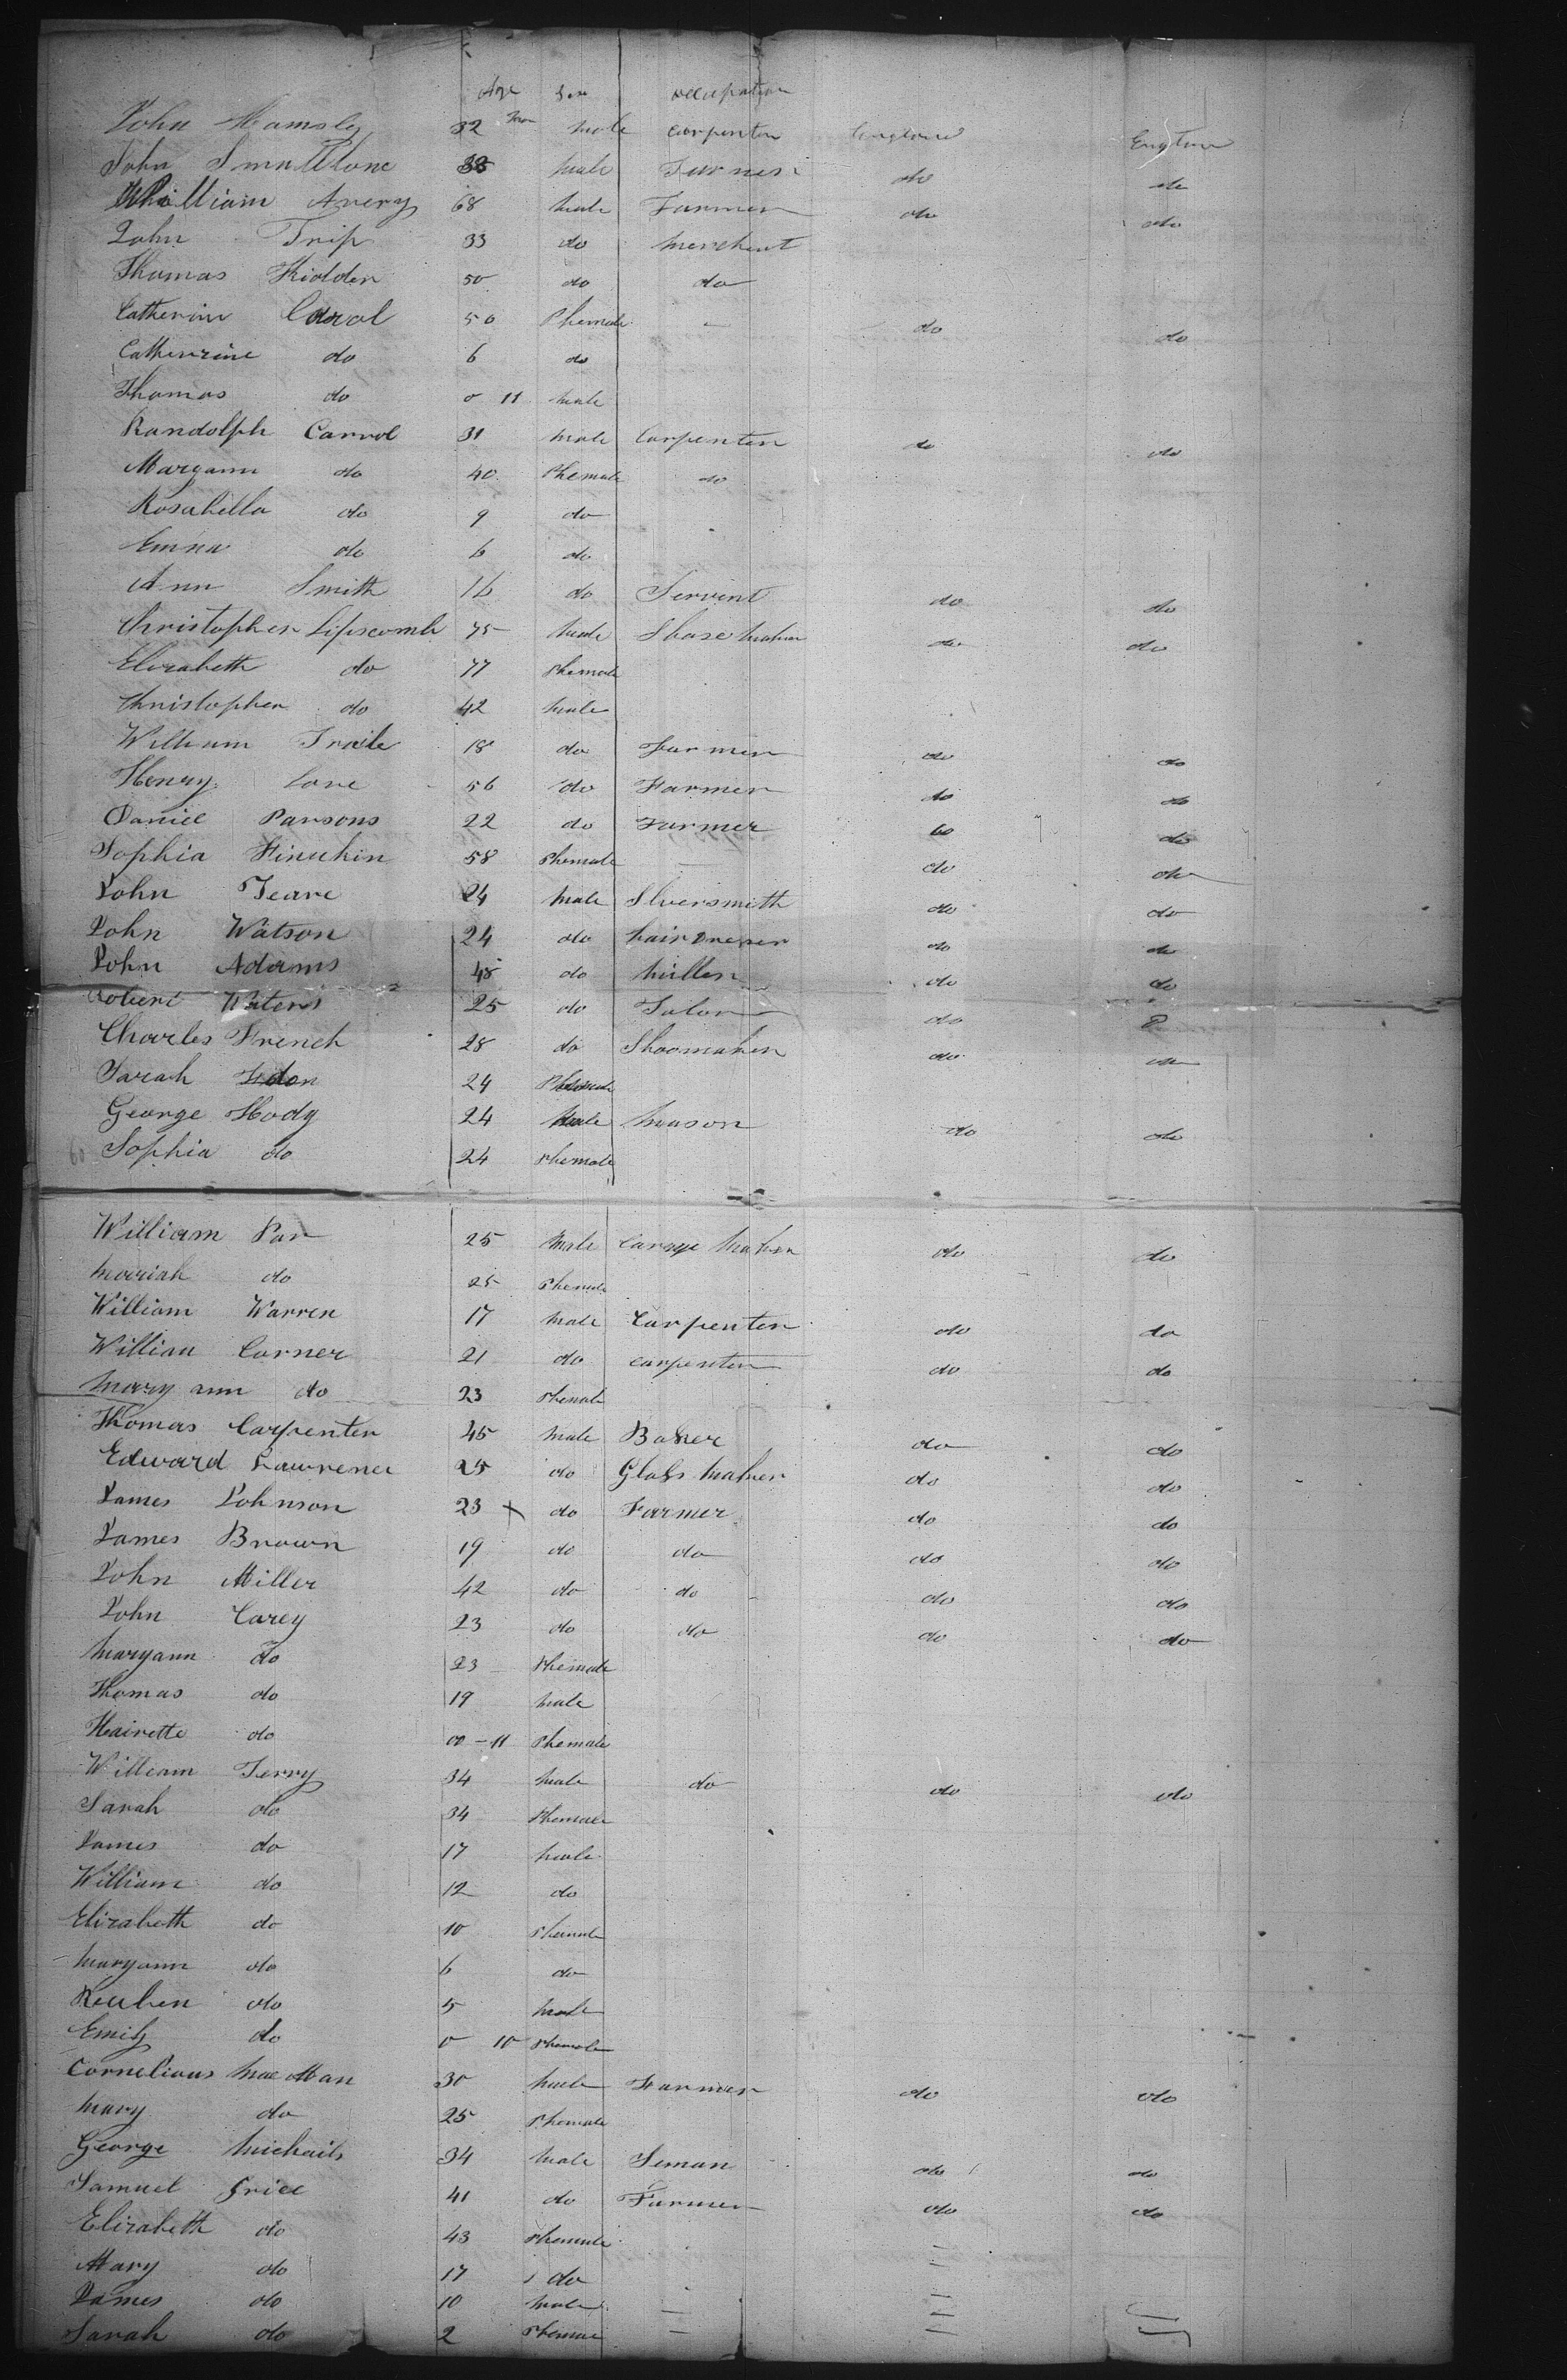 Age Sex occupation
John Hamsley 32 male carpenter England England
John Smallbone 38 male Farmer do do
William Avery 68 male Farmer do do
John Trip 33 do merchent
Thomas Hidden 50 do do
Catherine Carol 50 Phemale - do do
Catherrine do 6 do
Thomas do 0 11 male
Randolph Carrol 31 male Carpenter do do
Maryann do 40 Phemale do
Rosabella do 9 do
Emma do 6 do
Ann Smith 16 do Servint do do
Christopher Lipscomb 75 male Shase maker do do
Elizabeth do 77 Phemale
Christopher do 42 male
William Traile 18 do Farmer do do
Henry Lore 56 do Farmer do do
Daniel Parsons 22 do Farmer do do
Sophia 58 Phemale do do
John Teare 24 male Slversmith do do
John Watson 24 do hairdreser do do
John Adams 48 do miller do do
Robert Waters 25 do Talor do
Charles French 28 do Shoomaker do do
Sarah 24 Phemale
George Hody 24 male mason do do
Sophia do 24 Phemale
William Par 25 male Carage maker do do
Morriah do 25 Phemale
William Warren 17 male Carpenter do do
William Corner 21 do carpenter do do
Mary ann do 23 Phemale
Thomas Carpenter 45 male Baker do do
Edward Lawrence 25 do Glass maker do do
James Johnson 23 x do Farmer do do
James Brown 19 do do do do
John Miller 42 do do do do
John Carey 23 do do do do
Maryann do 23 Phemale
Thomas do 19 male
Hairette do 00 - 11 Phemale
William Terry 34 male do do do
Sarah do 34 Phemale
James do 17 male
William do 12 do
Elizabeth do 10 Phemale
Maryann do 6 do
Reuben do 5 male
Emily do 0 10 Phemale
Cornelious Mac Man 30 male Farmer do do
Mary do 25 Phemale
George Michails 34 male Seman do do
Samuel Grice 41 do Farmer do do
Elizabeth do 43 Phemale
Mary do 17 do
James do 10 male
Sarah do 2 Phemale